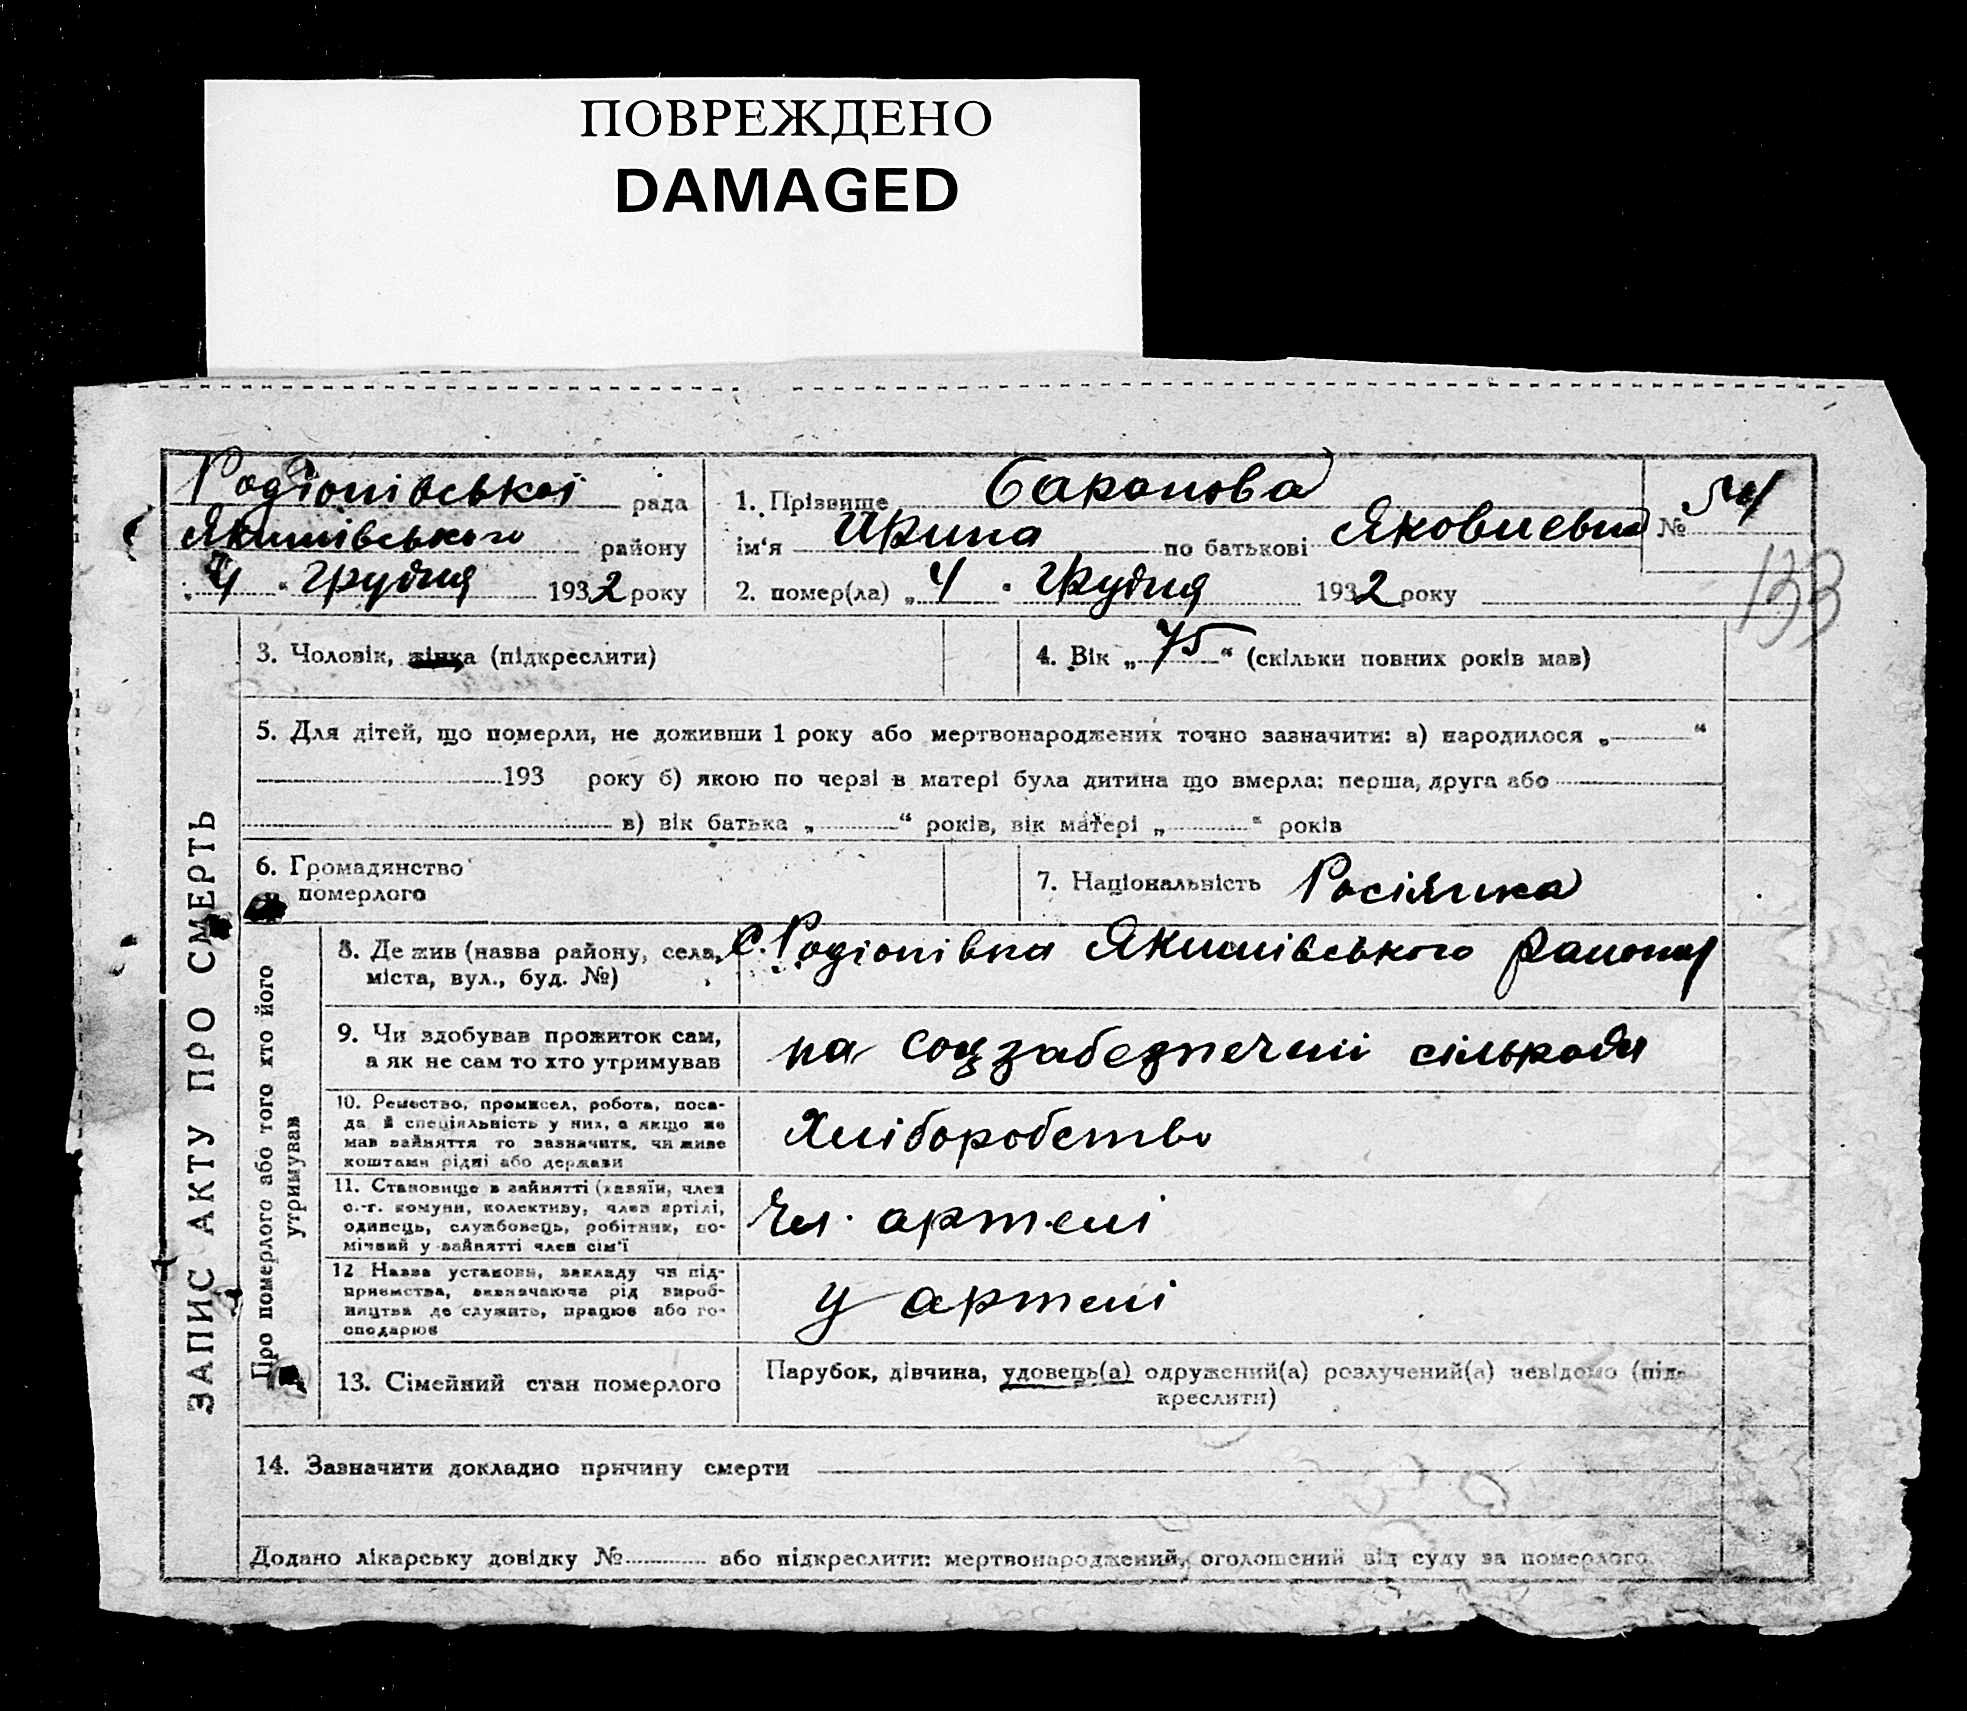 ПОВРЕЖДЕНО
DAMAGED
Родіонівської рада
Якимівського району
„4“ грудня 1932 року
1. Прізвище Сапонова
ім'я Ирина по батькові Яковлевна
№ 54
133
2. помер(ла) „4“ грудня 1932 року
3. Чоловік, жінка (підкреслити)
4. Вік „75“ (скільки повних років мав)
5. Для дітей, що померли, не доживши 1 року або мертвонароджених точно зазначити: а) народилося „ “
193 року б) якою по черзі в матері була дитина що вмерла: перша, друга або
в) вік батька „ “ років, вік матері „ “ років
6. Громадянство
померлого
7. Національність Росіянка
ЗАПИС АКТУ ПРО СМЕРТЬ
Про померлого або того хто його
утримував
8. Де жив (назва району, села,
міста, вул., буд. №)
с. Родіонівка Якимівського району
9. Чи здобував прожиток сам,
а як не сам то хто утримував
на соцзабезпечені сількоди
10. Ремество, промисел, робота, поса-
да й спеціяльність у них, а якщо не
мав зайняття то зазначити, чи живе
коштами рідні або держави
Хліборобство
11. Становище в зайнятті (хазяїн, член
с.-г. комуни, колективу, член артілі,
одинець, службовець, робітник, по-
мічний у зайнятті член сім'ї
Чл. артелі
12 Назва установи, закладу чи під-
приємства, зазначаючи рід вироб-
ництва де служить, працює або го-
сподарює
у артелі
13. Сімейний стан померлого
Парубок, дівчина, удовець(а) одружений(а) розлучений(а) невідомо (під-
креслити)
14. Зазначити докладно причину смерти
Додано лікарську довідку № або підкреслити: мертвонароджений, оголошений від суду за померлого.